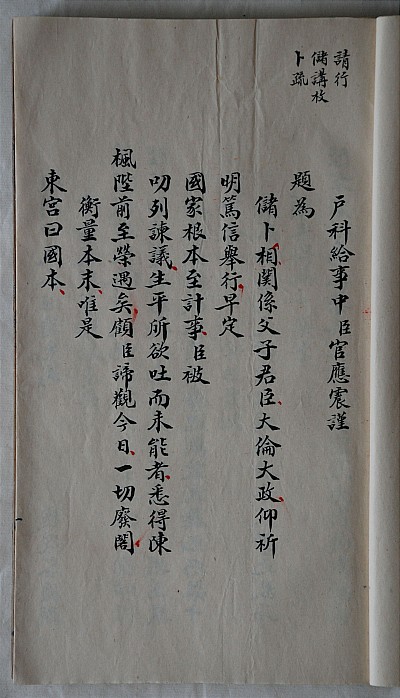 請行
儲講枚
卜疏
戶科給事中臣官應震謹
題為
儲卜相關係父子君臣大倫大政仰祈
明篤信舉行早定
國家根本至計事臣被
叨列諫議生平所欲吐而未能者悉得陳
楓陛前至榮遇矣顧臣諦觀今日一切廢閣
衡量本末唯是
東宮曰國本